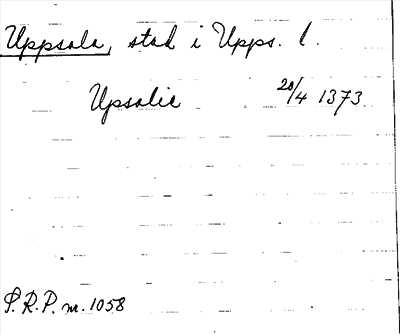 Uppsala, stad i Upps. l.
Upsalie 20/4 1373.
S.R.P. nr. 1058